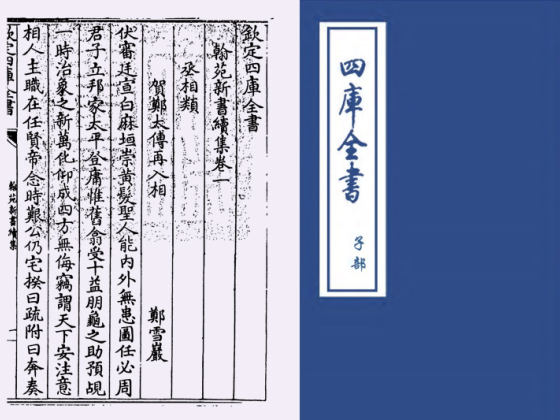 欽定四庫全書
翰苑新書續集卷一
丞相類
賀鄭太傅再入相
鄭雪巖
伏審廷宣白麻垣崇黄髮聖人能内外無患圖任必周
君子立邦家太平登庸惟舊翕受十益朋龜之助預覘
一時治象之新萬化仰成四方無侮竊謂天下安注意
相人主職在任賢帝念時艱公仍宅揆曰疏附曰奔奏
欽定四庫全書
翰苑新書續集
一
四庫全書
子部